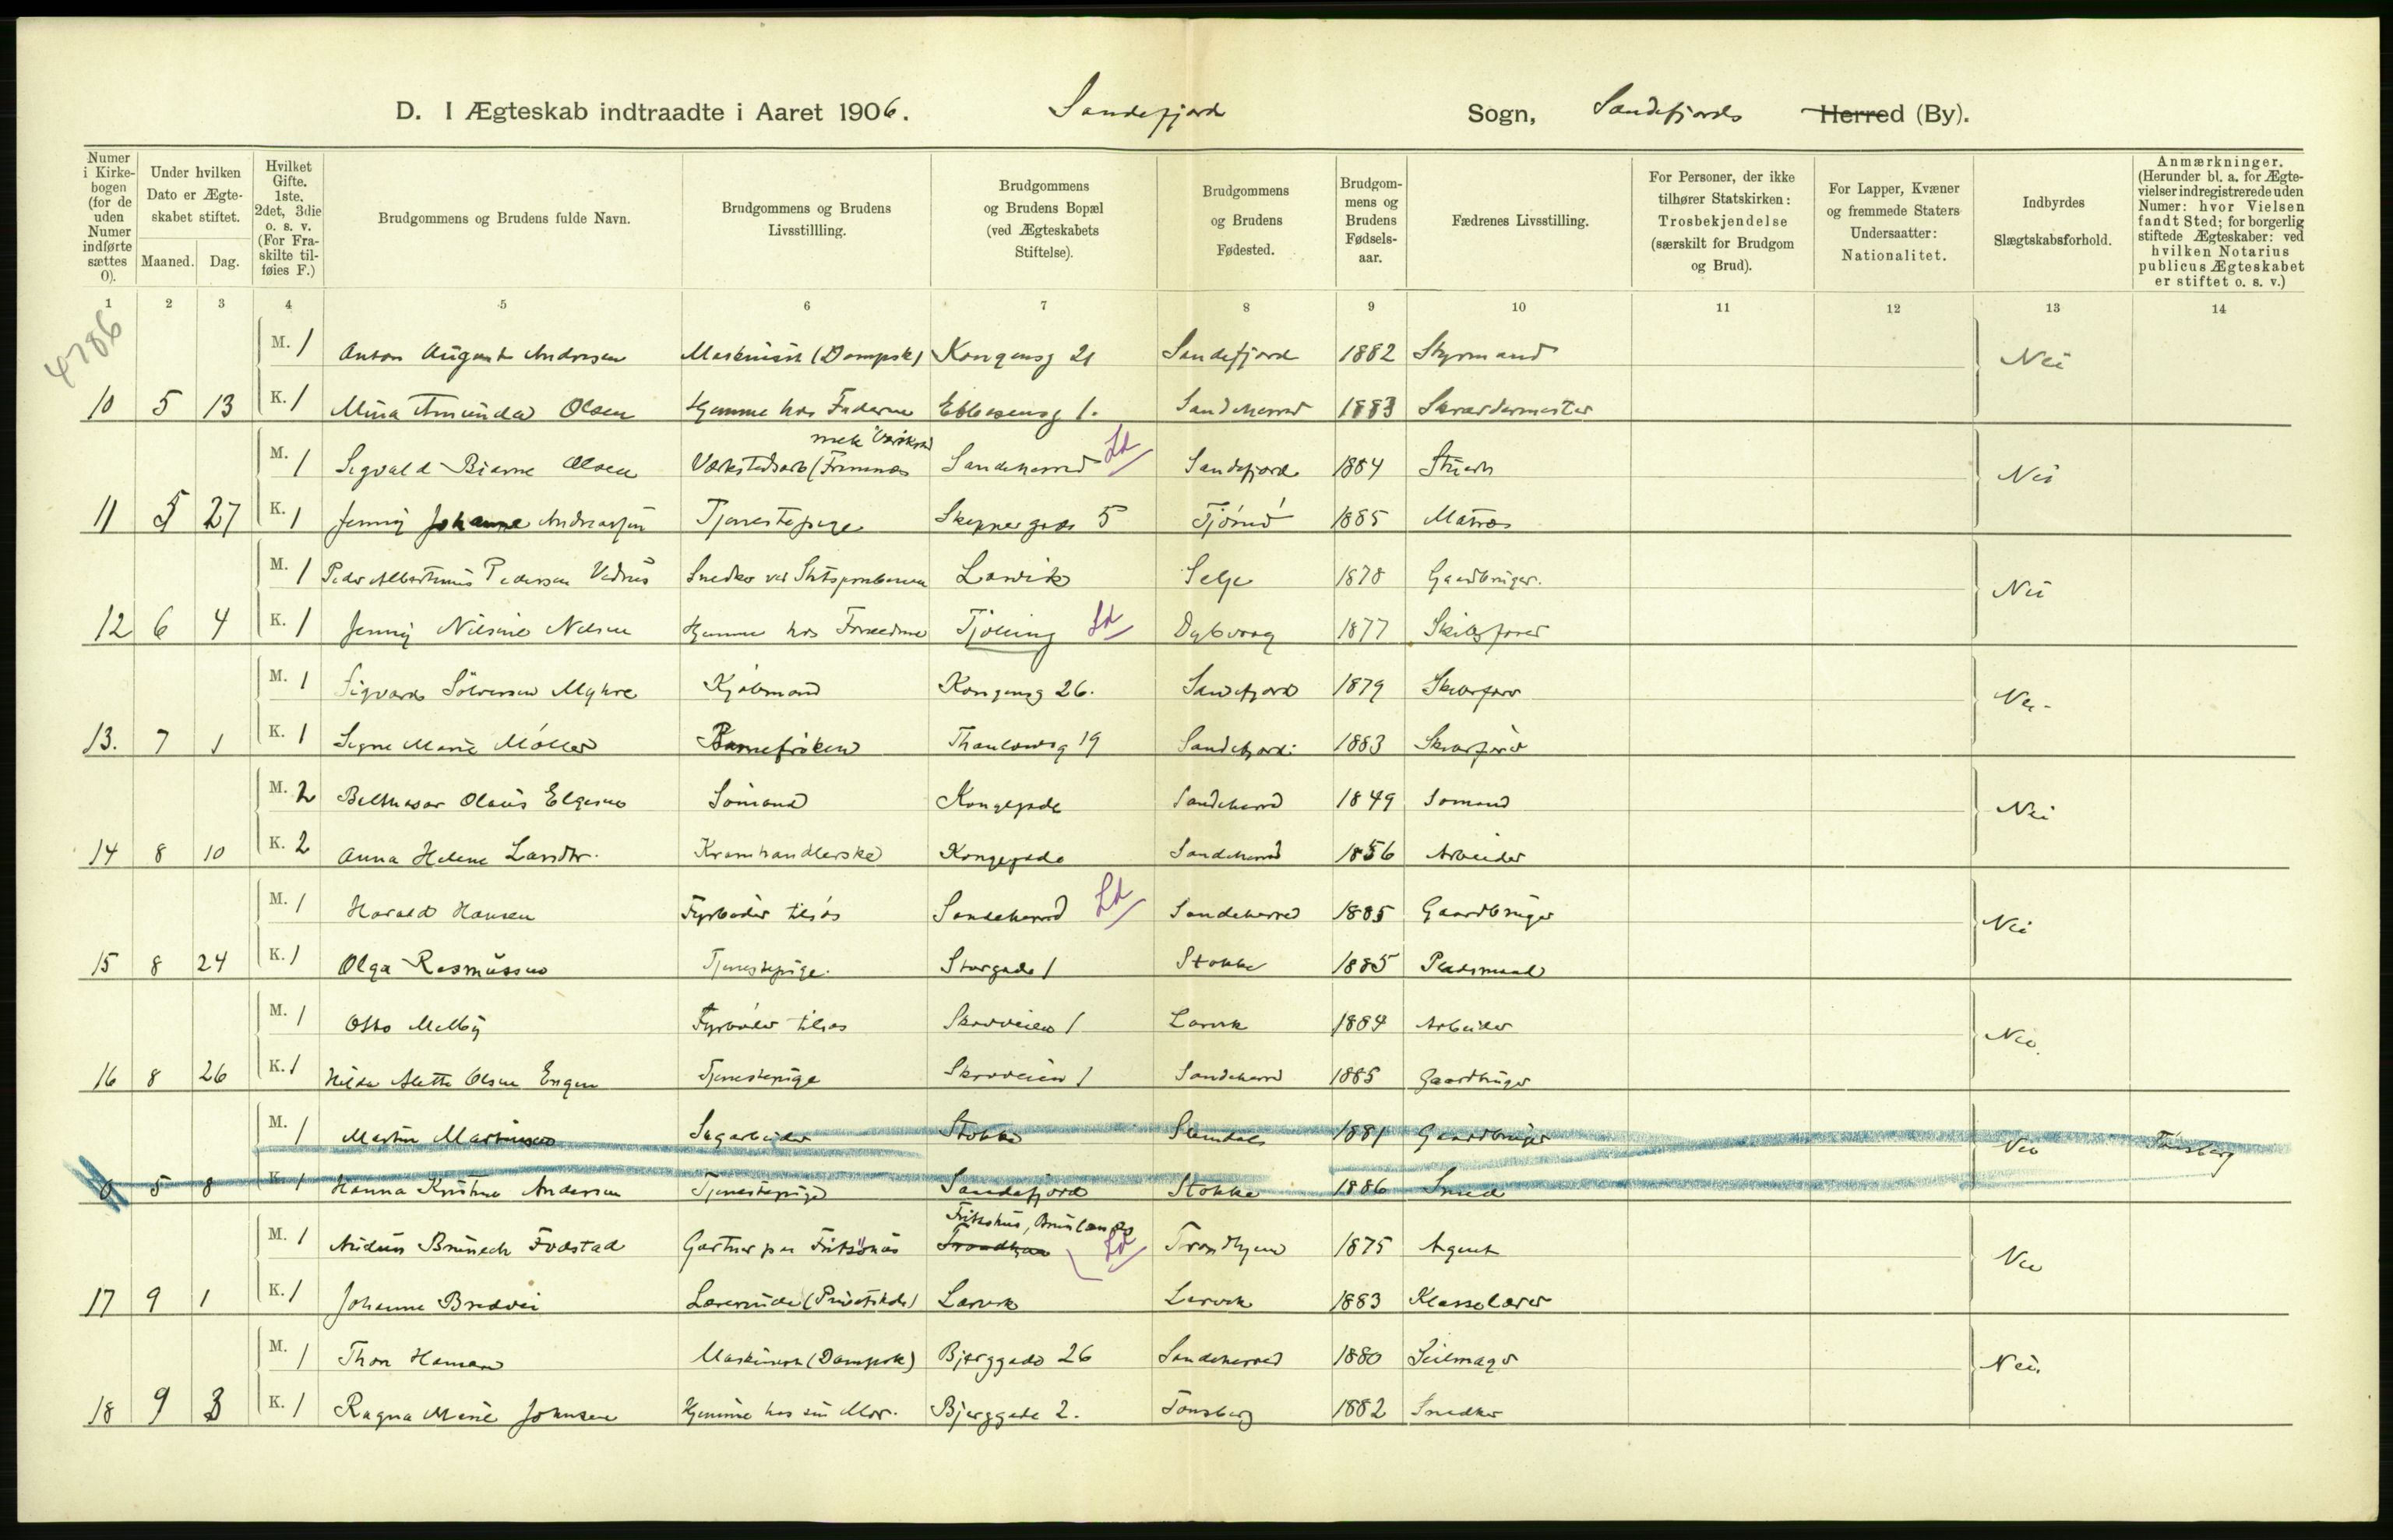 D. I Ægteskab indtraadte i Aaret 1906. Sandefjord Sogn, Sandefjords Herred (By).
Numer i Kirke-bogen (for de uden Numer indførte sættes 0).
Under hvilken Dato er Ægte-skabet stiftet.
Maaned. Dag.
Hvilket Gifte. 1ste. 2det, 3die o. s. v. (For Fra-skilte til-føies F.)
Brudgommens og Brudens fulde Navn.
Brudgommens og Brudens Livsstillling.
Brudgommens og Brudens Bopæl (ved Ægteskabets Stiftelse).
Brudgommens og Brudens Fødested.
Brudgom-mens og Brudens Fødsels-aar.
Fædrenes Livsstilling.
For Personer, der ikke tilhører Statskirken: Trosbekjendelse (særskilt for Brudgom og Brud).
For Lapper, Kvæner og fremmede Staters Undersaatter: Nationalitet.
Indbyrdes Slægtskabsforhold.
Anmærkninger. (Herunder bl. a. for Ægte-vielser indregistrerede uden Numer: hvor Vielsen fandt Sted; for borgerlig stiftede Ægteskaber: ved hvilken Notarius publicus Ægteskabet er stiftet o. s. v.)
1 2 3 4 5 6 7 8 9 10 11 12 13 14
4786
M. 1 Anton August Andresen Maskinist (Dampsk) Kongensg 21 Sandefjord 1882 Styrmand Nei
10 5 13 K. 1 Mina Amunda Olsen Hjemme hos Faderen 1. Sandeherred 1883 Skrædermester
mek Værksted
M. 1 Sigvald Bjarne Olsen Værkstedsarb (Framnæs Sandeherred Ld Sandefjord 1884 Nei
11 5 27 K. 1 Jenny Johanne Andreassen Tjenestepige Skippergade 5 Tjømø 1885 Matros
M. 1 Peder Albertinus Pedersen Snedker ved Larvik Selje 1878 Gaardbruger. Nei
12 6 4 K. 1 Jenny Nilsine Nilsen Hjemme hos Forældrene Tjølling Ld Dybvaag 1877 Skibsfører
M. 1 Sigvard Sölversen Myhre Kjøbmand Kongensg 26. Sandefjord 1879 Skibsfører Nei
13. 7 1 K. 1 Signe Marie Møller Barnefrøken Thaulowsg 19 Sandefjord 1883 Skibsfører
M. 2 Balthasar Olaus Elgesen Sømand Kongegade Sandeherred 1849 Sømand Nei
14 8 10 K. 2 Anna Helene Kramhandlerske Kongegade Sandeherred 1856 Arbeider
M. 1 Harald Hansen Fyrbøder tilsøs Sandeherred Ld Sandeherred 1885 Gaardbruger Nei
15 8 24 K. 1 Olga Rasmussen Tjenestepige. Storgade 1 Stokke 1885 Pladsmand
M. 1 Otto Melby Fyrbøder tilsøs Skovveien 1 Larvik 1884 Arbeider Nei.
16 8 26 K. 1 Hilda Alette Olsen Engen Tjenestepige Skovveien 1 Sandeherred 1885 Gaardbruger
M. 1 Martin Martinsen Sagarbeider Stokke 1881 Gaardbruger Nei Tønsberg
0 5 8 K. 1 Hanna Kristine Andersen Tjenestepige Sandefjord Stokke 1886 Smed
Fritzøhus,
M. 1 Audun Fodstad Gartner paa Fritzøhus Trondhjem Ld Trondhjem 1875 Agent Nei
17 9 1 K. 1 Johanne Bredvei Lærerinde (Privatskole) Larvik Larvik 1883 Klasselærer
M. 1 Thor Hansen Maskinist (Dampsk) Bjerggade 26 Sandeherred 1880 Seilmager Nei.
18 9 3 K. 1 Ragna Marie Johnsen Hjemme hos sin Mor. Bjerggade 2. Tønsberg 1882 Snedker